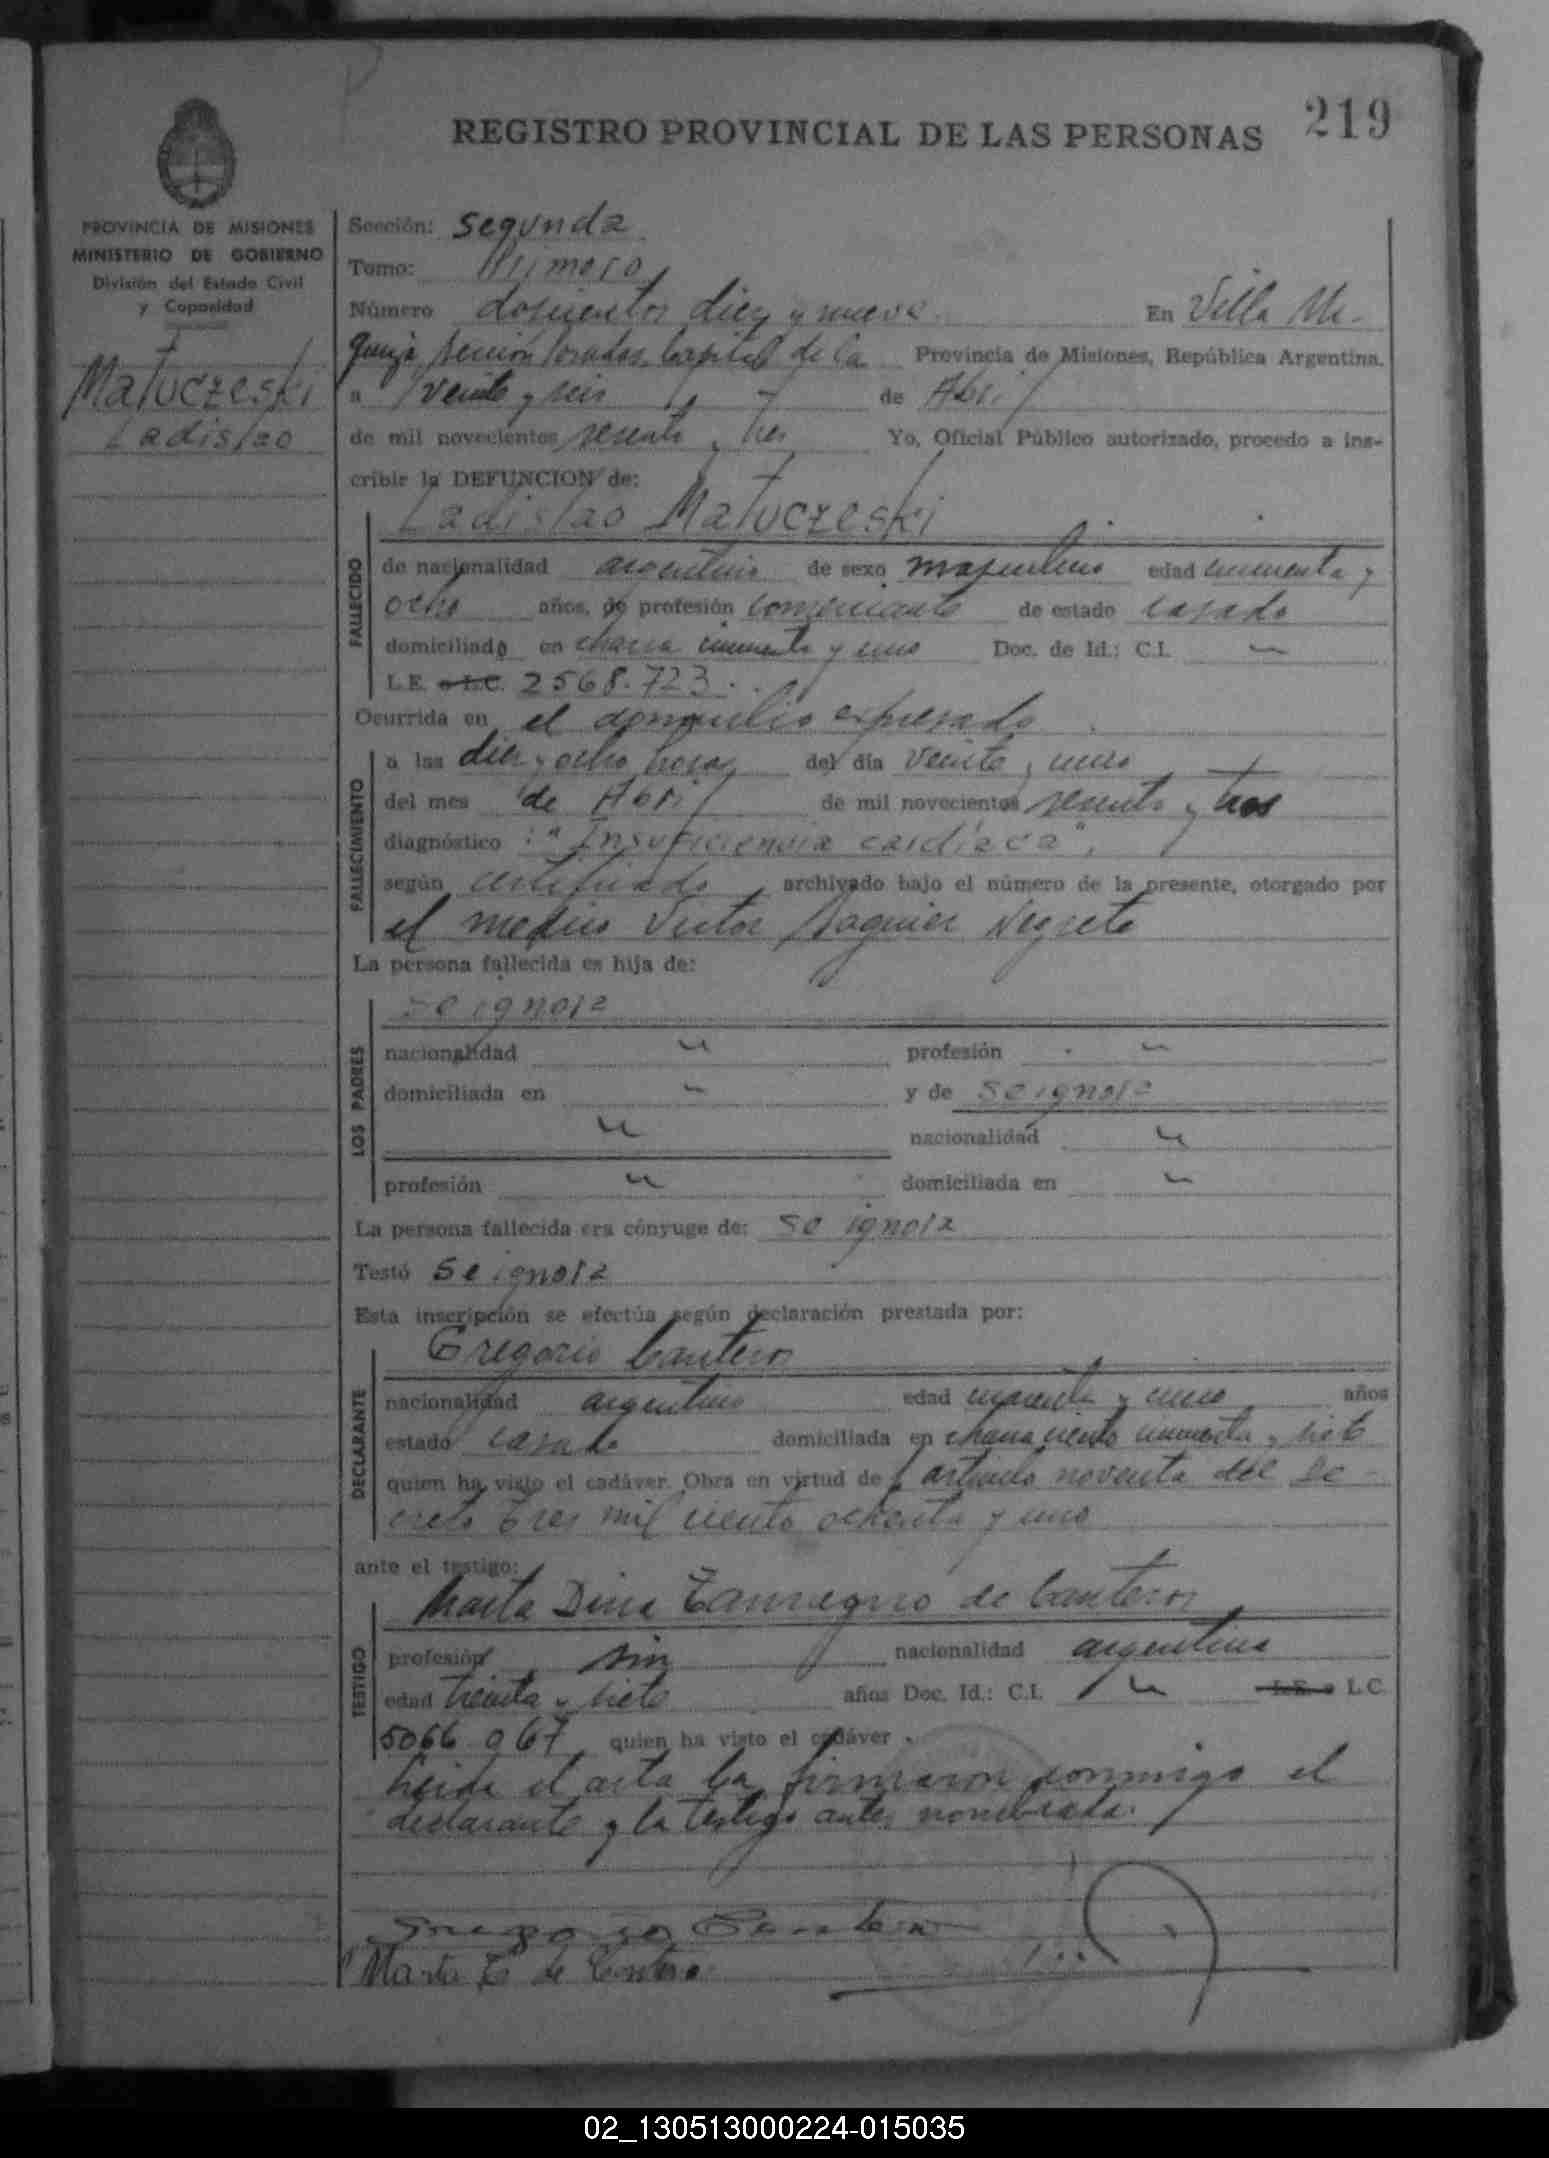 219
REGISTRO PROVINCIAL DE LAS PERSONAS
PROVINCIA DE MISIONES
MINISTERIO DE GOBIERNO
División del Estado Civil
y Capacidad
Matuczeski
Ladislao
Sección: Segunda
Tomo: Primero
Número doscientos diez y nueve En Villa Ur-
quiza, Sección Posadas, Capital de la Provincia de Misiones, República Argentina,
a veinte y seis de Abril
de mil novecientos sesenta y tres Yo, Oficial Público autorizado, procedo a ins-
cribir la DEFUNCION de:
Ladislao Matuczeski
FALLECIDO
de nacionalidad argentino de sexo masculino edad cincuenta y
ocho años, de profesión comerciante de estado casado
domiciliado en chacra cincuenta y uno Doc. de Id.: C.I. "
L.E. o L.C. 2568.723.
Ocurrida en el domicilio expresado
FALLECIMIENTO
a las diez y ocho horas del día veinte y uno
del mes de Abril de mil novecientos sesenta y tres
diagnóstico : "Insuficiencia cardíaca",
según certificado archivado bajo el número de la presente, otorgado por
el médico Victor Negrete
La persona fallecida es hija de:
LOS PADRES
se ignora
nacionalidad " profesión "
domiciliada en " y de se ignora
" nacionalidad "
profesión " domiciliada en "
La persona fallecida era cónyuge de: se ignora
Testó se ignora
Esta inscripción se efectúa según declaración prestada por:
DECLARANTE
Gregorio Canteros
nacionalidad argentino edad cuarenta y años
estado casado domiciliada en chacra ciento cincuenta y siete
quien ha visto el cadáver. Obra en virtud del artículo noventa del de-
creto tres mil ciento ochenta y uno
ante el testigo:
TESTIGO
Marta Dina de Canteros
profesión sin nacionalidad argentina
edad treinta y siete años Doc. Id.: C.I. " L.E. o L.C.
5066.967 quien ha visto el cadáver.
Leída el acta la firmaron conmigo el
declarante y la testigo antes nombrada.
Gregorio Canteros
Marta T. de Canteros
02_130513000224-015035